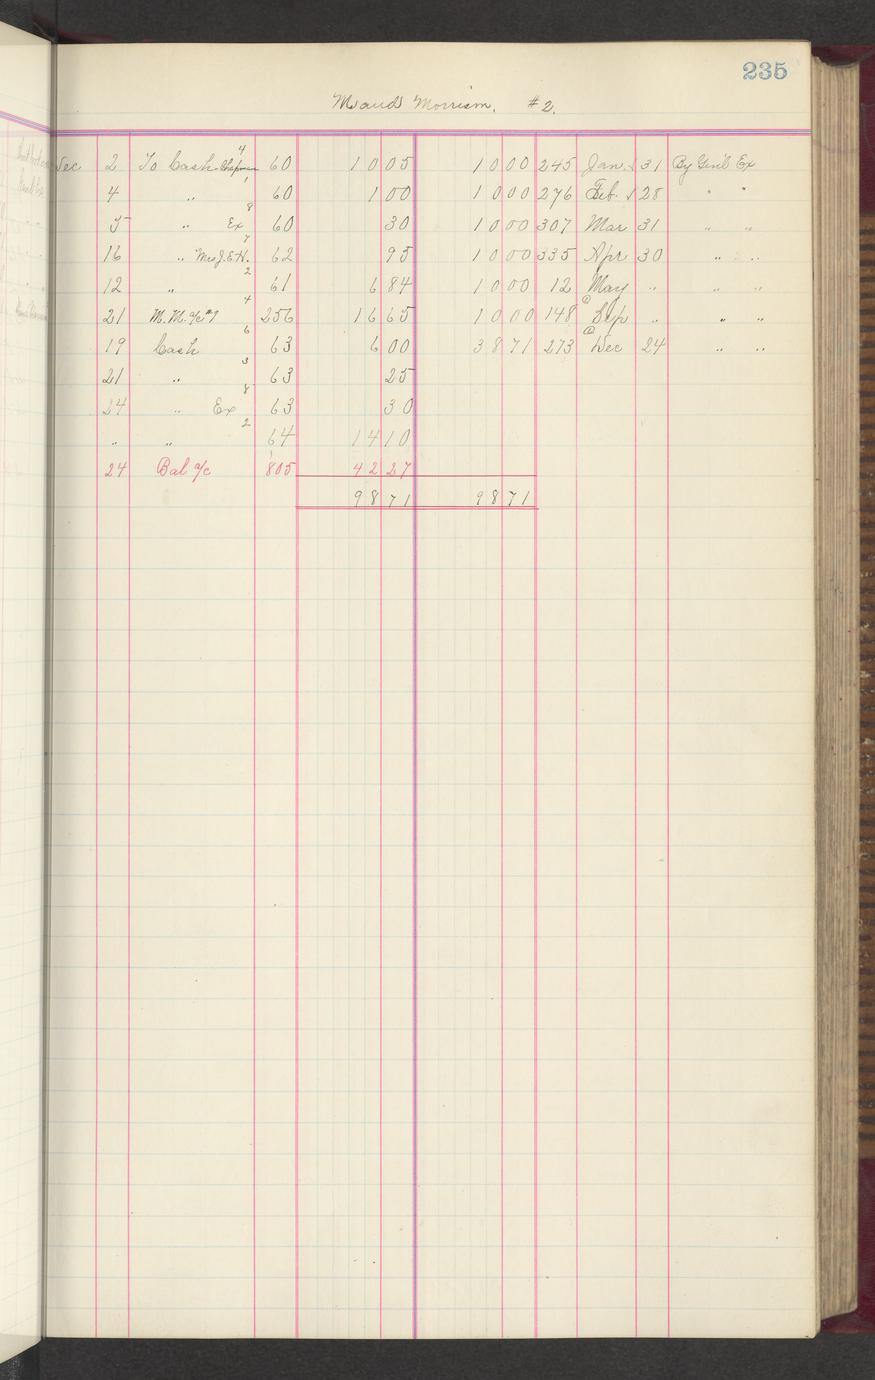 235
Maud Morrison. #2.
Dec 2 To Cash Chapman 4 60 10 05 10 00 245 Jan. 31 By Gen'l Ex
4 " 1 60 1 00 10 00 276 Feb. 28 " "
5 " Ex 8 60 30 10 00 307 Mar 31 " "
16 " Mrs J.E.H. 7 62 95 10 00 335 Apr 30 " "
12 " 2 61 6 84 10 00 12 May " " "
21 M.M. a/c #1 4 256 16 65 10 00 148 Sep " " "
19 Cash 6 63 6 00 38 71 273 Dec 24 " "
21 " 3 63 25
24 " Ex 8 63 30
" " 2 64 14 10
24 Bal a/c 805 42 27
98 71 98 71